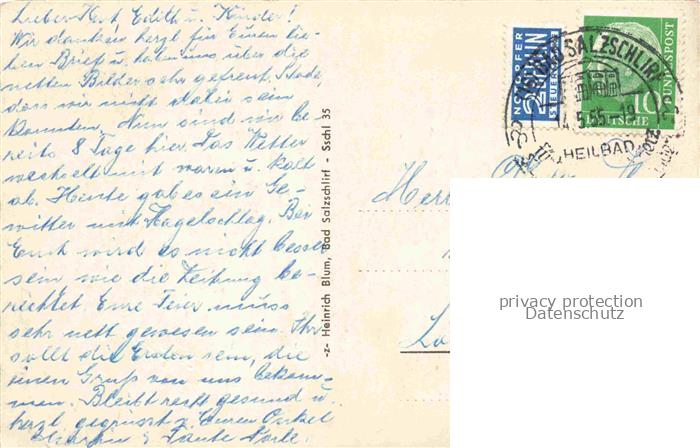 Lieber Kurt, Edith u. Kinder!
Wir danken herzl. für Euren lie-
ben Brief u. haben uns über die
netten Bilder sehr gefreut. Schade,
dass wir nicht dabei sein
konnten. Nun sind wir be-
reits 8 Tage hier. Das Wetter
wechselt mit warm u. kalt
ab. Heute gab es ein Ge-
witter mit Hagelschlag. Bei
Euch wird es nicht besser
sein wie die Zeitung be-
richtet. Eure Feier muss
sehr nett gewesen sein. Ihr
sollt die Ersten sein, die
einen Gruß von uns bekom-
men. Bleibt recht gesund u.
herzl. gegrüsst v. Euren Onkel
& Tante
-z- Heinrich Blum, Bad Salzschlirf - Sschl 35
NOTOPFER
2 BERLIN
STEUERMARKE
BAD SALZSCHLIRF
4.5.55
HEILBAD
10
DEUTSCHE
BUNDESPOST
Herrn
privacy protection
Datenschutz